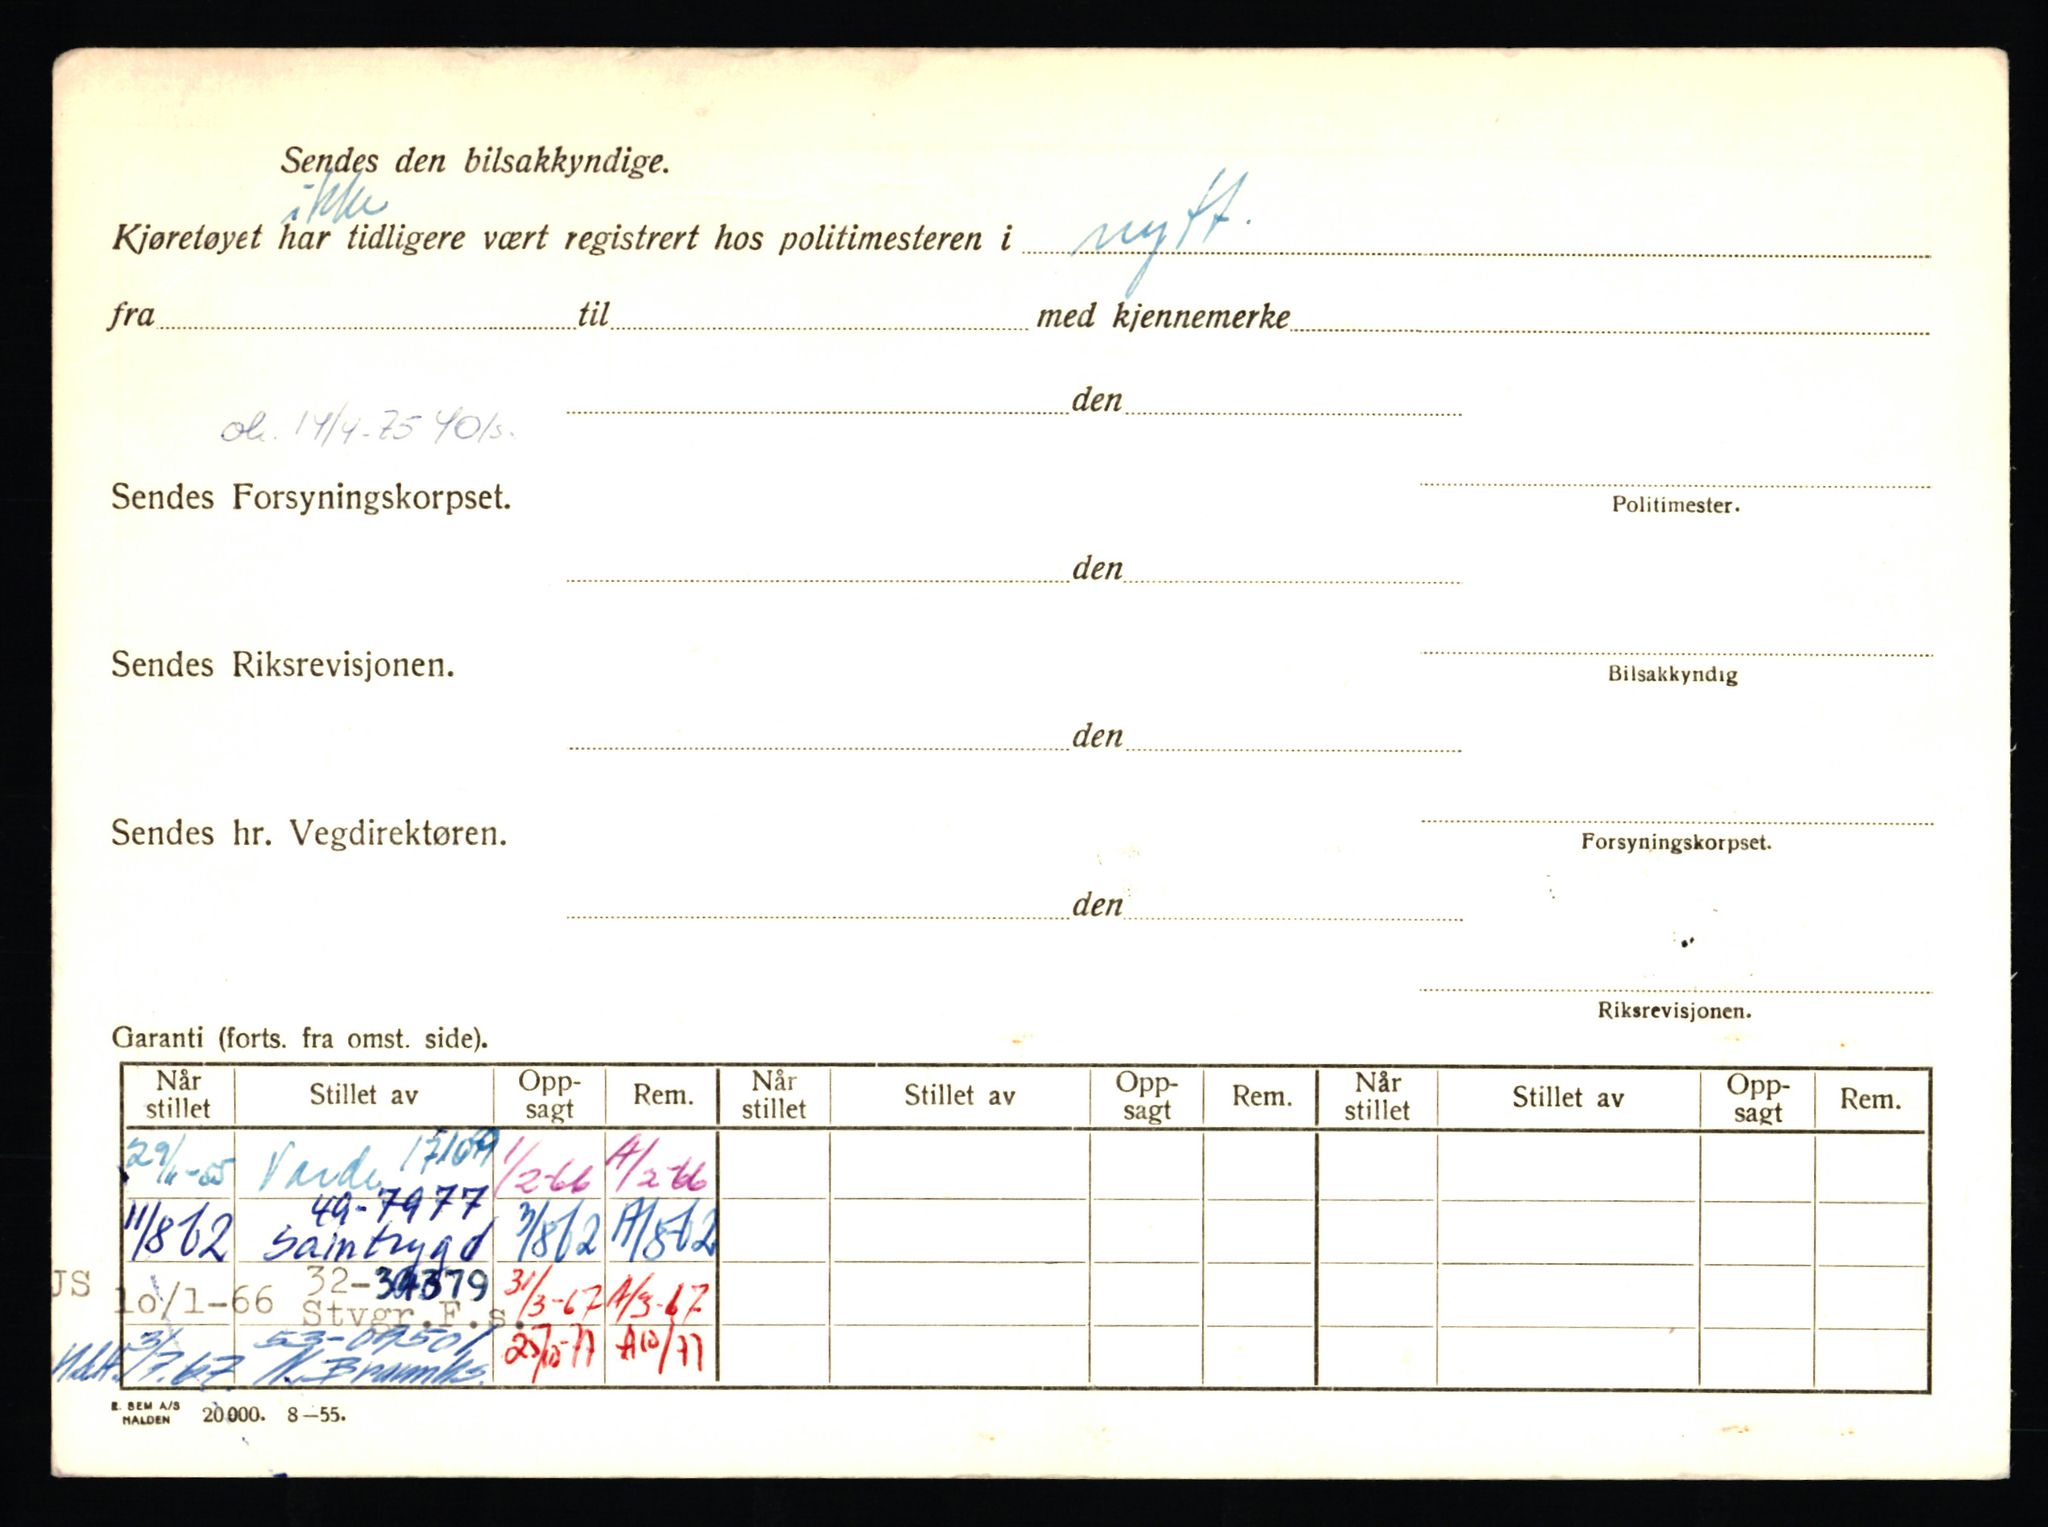 Sendes den bilsakkyndige.
ikke
Kjøretøyet har tidligere vært registrert hos politimesteren i nytt.
fra til med kjennemerke
den
ok. 14/4-75
Sendes Forsyningskorpset.
Politimester.
den
Sendes Riksrevisjonen.
Bilsakkyndig
den
Sendes hr. Vegdirektøren.
Forsyningskorpset.
den
Riksrevisjonen.
Garanti (forts. fra omst. side).
Når stillet Stillet av Opp-sagt Rem. Når stillet Stillet av Opp-sagt Rem. Når stillet Stillet av Opp-sagt Rem.
29/11-55 Varde 1/2-66 A/2-66
49-7977
11/8 62 Samtrygd 3/8 62 A/8-62
JS 10/1-66 32-34379 Stvgr.F.s. 31/3-67 A/3-67
3/7.67. 25/10-77 A10/77
E. SEM A/S HALDEN 20 000. 8-55.